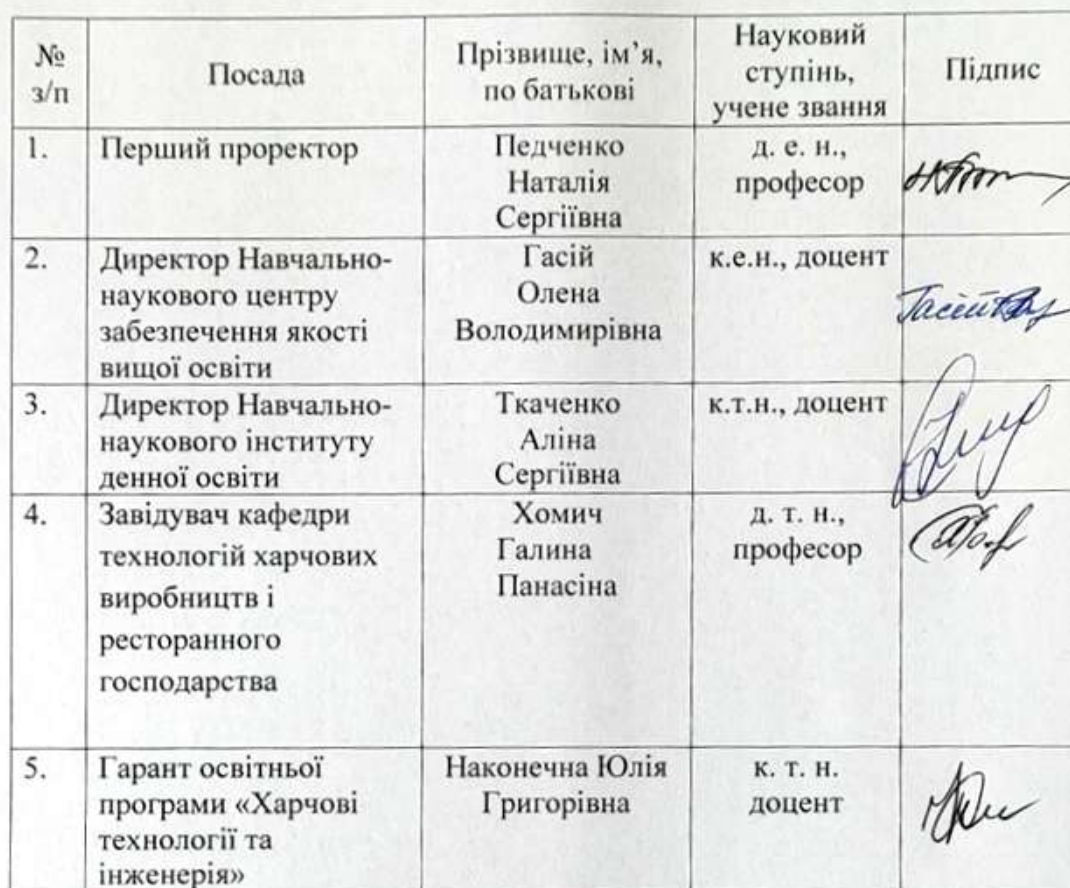 № з/п
Посада
Прізвище, ім’я,
по батькові
Науковий
ступінь,
учене звання
Підпис
1.
Перший проректор
Педченко
Наталія
Сергіївна
д. е. н.,
професор
2.
Директор Навчально-
наукового центру
забезпечення якості
вищої освіти
Гасій
Олена
Володимирівна
к.е.н., доцент
3.
Директор Навчально-
наукового інституту
денної освіти
Ткаченко
Аліна
Сергіївна
к.т.н., доцент
4.
Завідувач кафедри
технологій харчових
виробництв і
ресторанного
господарства
Хомич
Галина
Панасіна
д. т. н.,
професор
5.
Гарант освітньої
програми «Харчові
технології та
інженерія»
Наконечна Юлія
Григорівна
к. т. н.
доцент